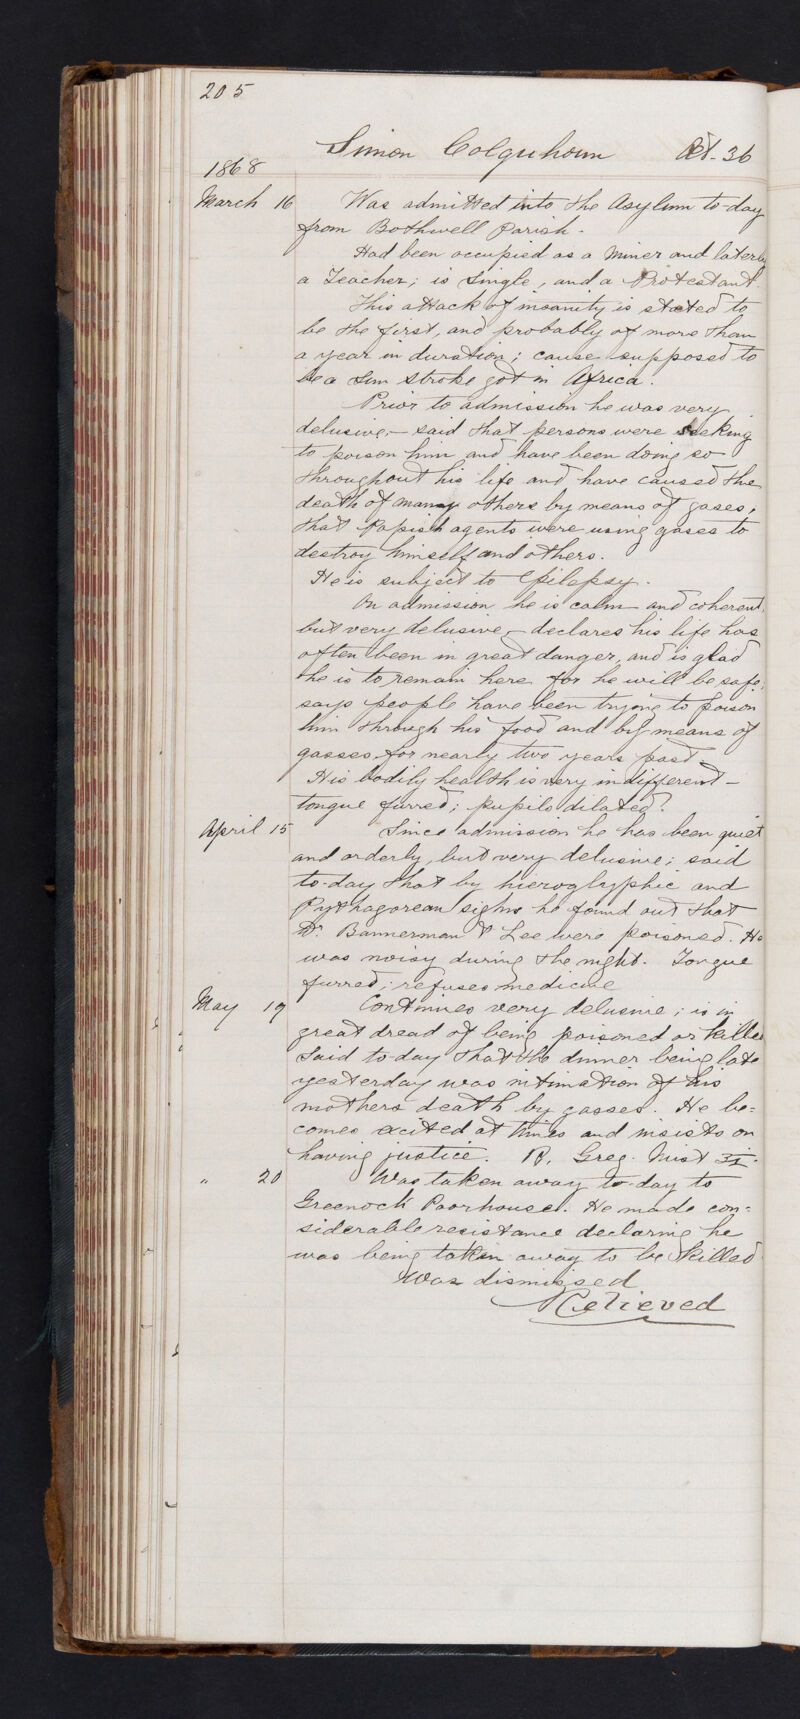 205
Simon Colquhoun Æt. 36
1868
March 16 Was admitted into the Asylum to-day
from Bothwell Parish.
Had been occupied as a Miner and laterly
a Teacher; is single, and a Protestant.
This attack of insanity is stated to
be the first, and probably of more than
a year in duration; cause supposed to
be a Sun stroke got in Africa.
Prior to admission he was very
delusive;– said that persons were seeking
to poison him and have been doing so
throughout his life and have caused the
death of many others by means of gases,
that Papish agents were using gases to
destroy himself and others.
He is subject to Epilepsy.
On admission he is calm and coherent,
but very delusive,– declares his life has
often been in great danger, and is glad
he is to remain here for he will be safe,
says people have been trying to poison
him through his food and by means of
gasses for nearly two years past
His bodily health is very indifferent –
tongue furred; pupils dilated.
April 15 Since admission he has been quiet
and orderly, but very delusive; said
to-day that by hieroglyphic and
Pythagorean signs he found out that
Dr. Bannerman & Lee were poisoned. He
was noisy during the night. Tongue
furred; refuses medicine
May 19 Continues very delusive; is in
great dread of being poisoned or killed
Said to-day that the dinner being late
yesterday was intimation of his
mothers death by gasses. He be=
comes excited at times and insists on
having justice. ℞. Greg. Mist ʒi.
" 20 Was taken away to-day to
Greenock Poorhouse. He made con=
siderable resistance declaring he
was being taken away to be killed.
Was dismissed
Relieved